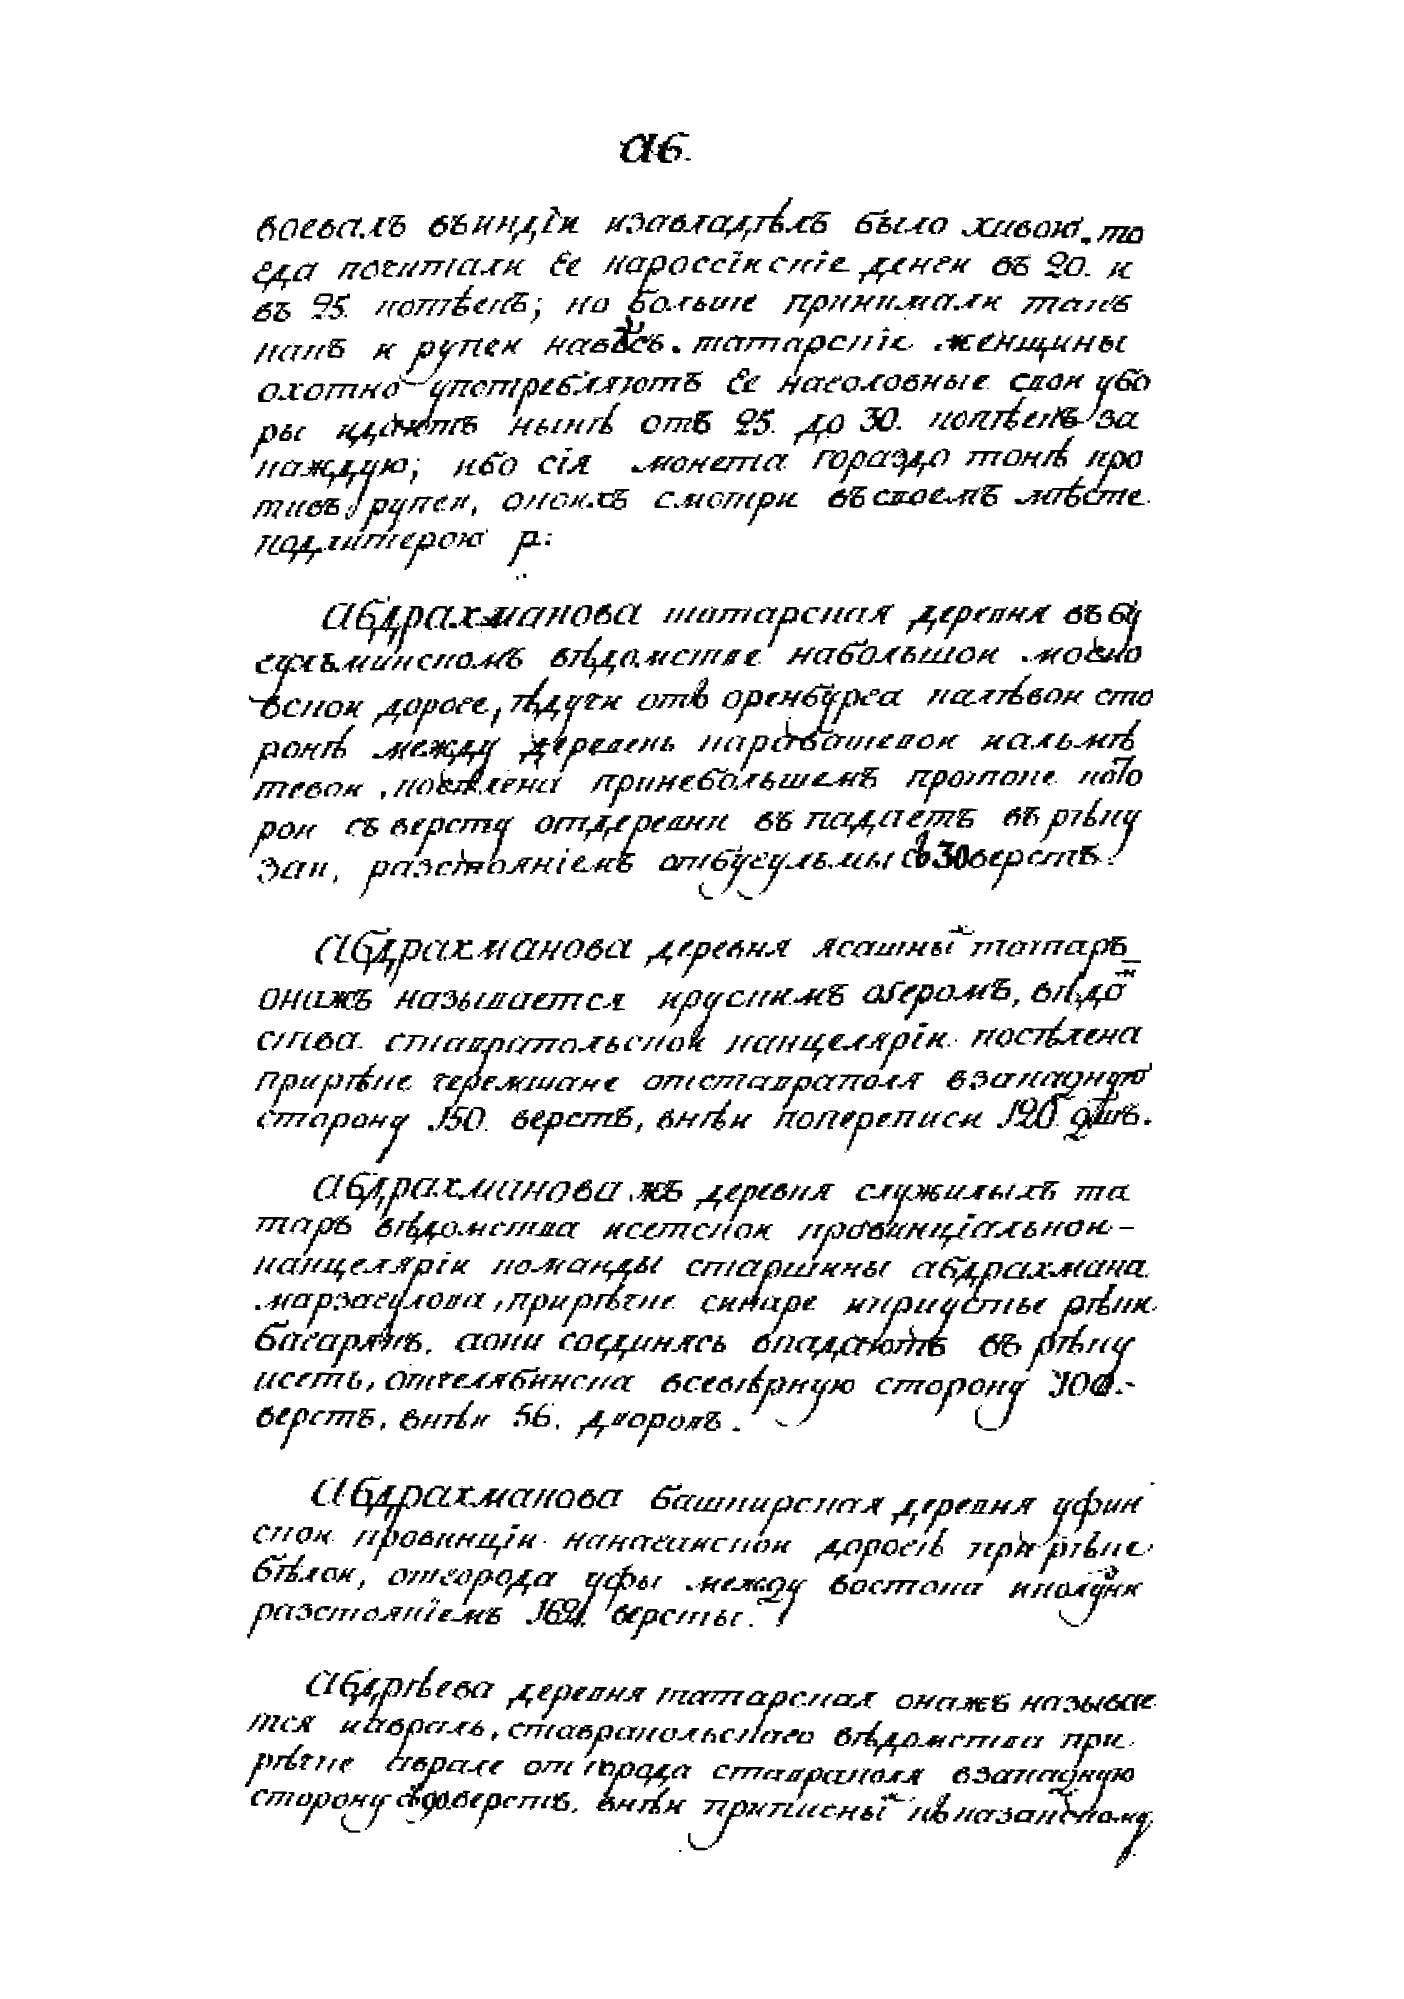 аб.
воевалъ въиндіи изавладѣлъ было хивою. то
гда почитали ее нароссійскіе денги въ 20. и
въ 25. копѣекъ; но больше принимали такъ
какъ и рупеи навѣсъ. татарскіе женщины
охотно употребляютъ ее наголовные свои убо
ры идаютъ нынѣ отъ 25. до 30. копѣекъ за
каждую; ибо сія монета гораздо тонѣ про
тивъ рупеи, оноихъ смотри въсвоемъ мѣсте
подлитерою р:
абдрахманова татарская деревня въбу
гульминскомъ вѣдомстве набольшой моско
вской дороге, ѣдучи отъ оренбурга налѣвой сто
ронѣ между деревень карабашевой кальмѣ
тевой, поселена принебольшемъ протоке кото
рой съ версту отдеревни въ падаетъ въ рѣку
заи, разстояніемъ отбугульмы въ 30 верстъ.
абдрахманова деревня ясашныхъ татаръ
онажъ называется круглимъ озеромъ, вѣдом
ства ставрапольской канцеляріи поселена
прирѣке черемшане отставраполя взападную
сторону 150. верстъ, внѣй попереписи 120. душъ.
абдрахманова жъ деревня служилыхъ та
таръ вѣдомства исетской провинціальной
канцеляріи команды старшины абдрахмана
марзагулова, прирѣчке синаре иприустье рѣчки
багарякъ. аони соединясь впадаютъ въ рѣку
исеть, отчелябинска всевѣрную сторону 100.
верстъ, внѣй 56. дворовъ.
абдрахманова башкирская деревня уфин
ской провинціи нанагайской дорогѣ при рѣке
бѣлой, отгорода уфы между востока иполудни
разстояніемъ 162. версты.
абдрѣева деревня татарская онажъ называе
тся кавраль, ставрапольскаго вѣдомства при
рѣчке аврале отгорода ставраполя взападную
сторону въ 90. верстъ. внѣй приписныхъ къказанскому